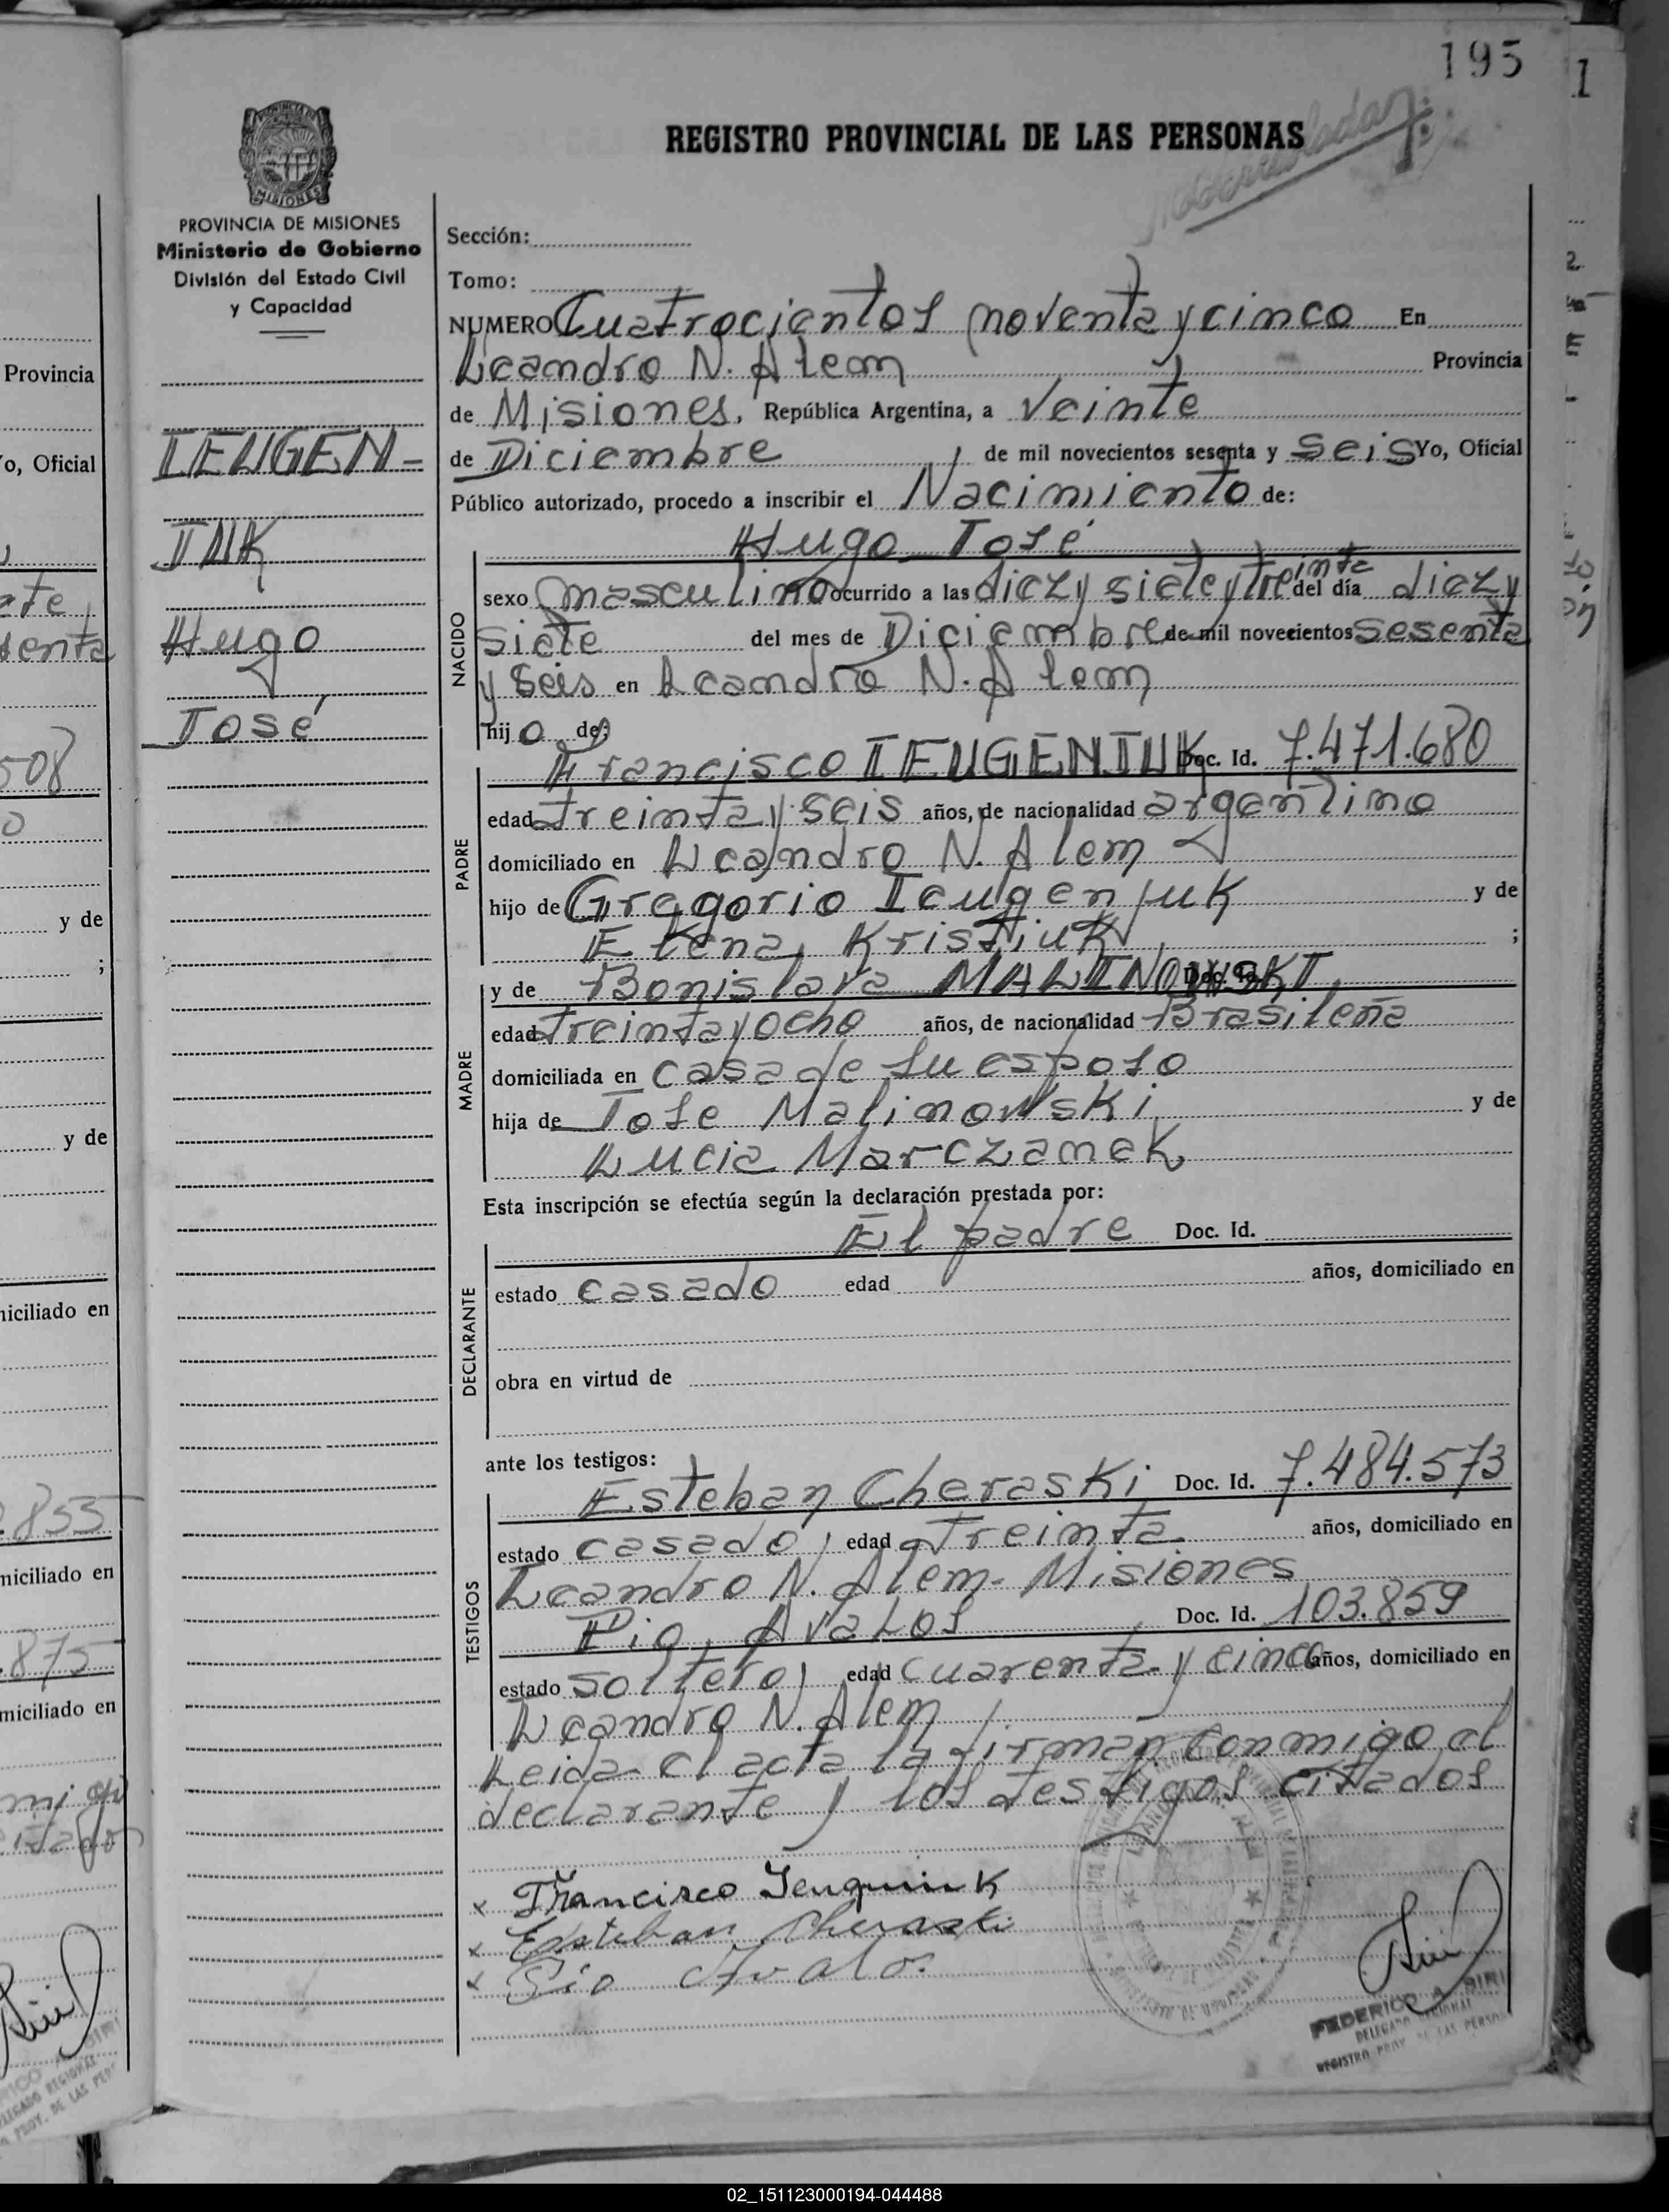 195
REGISTRO PROVINCIAL DE LAS PERSONAS
PROVINCIA DE MISIONES
Ministerio de Gobierno
División del Estado Civil
y Capacidad
IEUGEN-
IUK
Hugo
José
Sección:
Tomo:
NUMERO Cuatrocientos noventa y cinco En
Leandro N. Alem Provincia
de Misiones, República Argentina, a Veinte
de Diciembre de mil novecientos sesenta y seis Yo, Oficial
Público autorizado, procedo a inscribir el Nacimiento de:
Hugo José
NACIDO
sexo masculino ocurrido a las diez y siete y treinta del día diez y
siete del mes de Diciembre de mil novecientos sesenta
y seis en Leandro N. Alem
hijo de:
Francisco IEUGENIUK Doc. Id. 7.471.680
PADRE
edad treinta y seis años, de nacionalidad argentino
domiciliado en Leandro N. Alem
hijo de Gregorio Ieugeniuk y de
Elena Kristiuk ;
y de Bonislava MALINOWSKI Doc. Id.
MADRE
edad treinta y ocho años, de nacionalidad Brasileña
domiciliada en casa de su esposo
hija de Jose Malinowski y de
Lucia Marczanek
Esta inscripción se efectúa según la declaración prestada por:
El padre Doc. Id.
DECLARANTE
estado casado edad años, domiciliado en
obra en virtud de
ante los testigos:
Esteban Cheraski Doc. Id. 7.484.573
TESTIGOS
estado casado, edad treinta años, domiciliado en
Leandro N. Alem - Misiones
Pio Avalos Doc. Id. 103.859
estado soltero, edad cuarenta y cinco años, domiciliado en
Leandro N. Alem
Leida el acta la firman conmigo el
declarante y los testigos citados
x Francisco Ieugeniuk
x Esteban Cheraski
x Pio Avalos
FEDERICO A. SIRI
DELEGADO REGIONAL
REGISTRO PROV. DE LAS PERSON
Provincia
Yo, Oficial
508
y de
;
y de
miciliado en
.855
miciliado en
.875
miciliado en
02_151123000194-044488